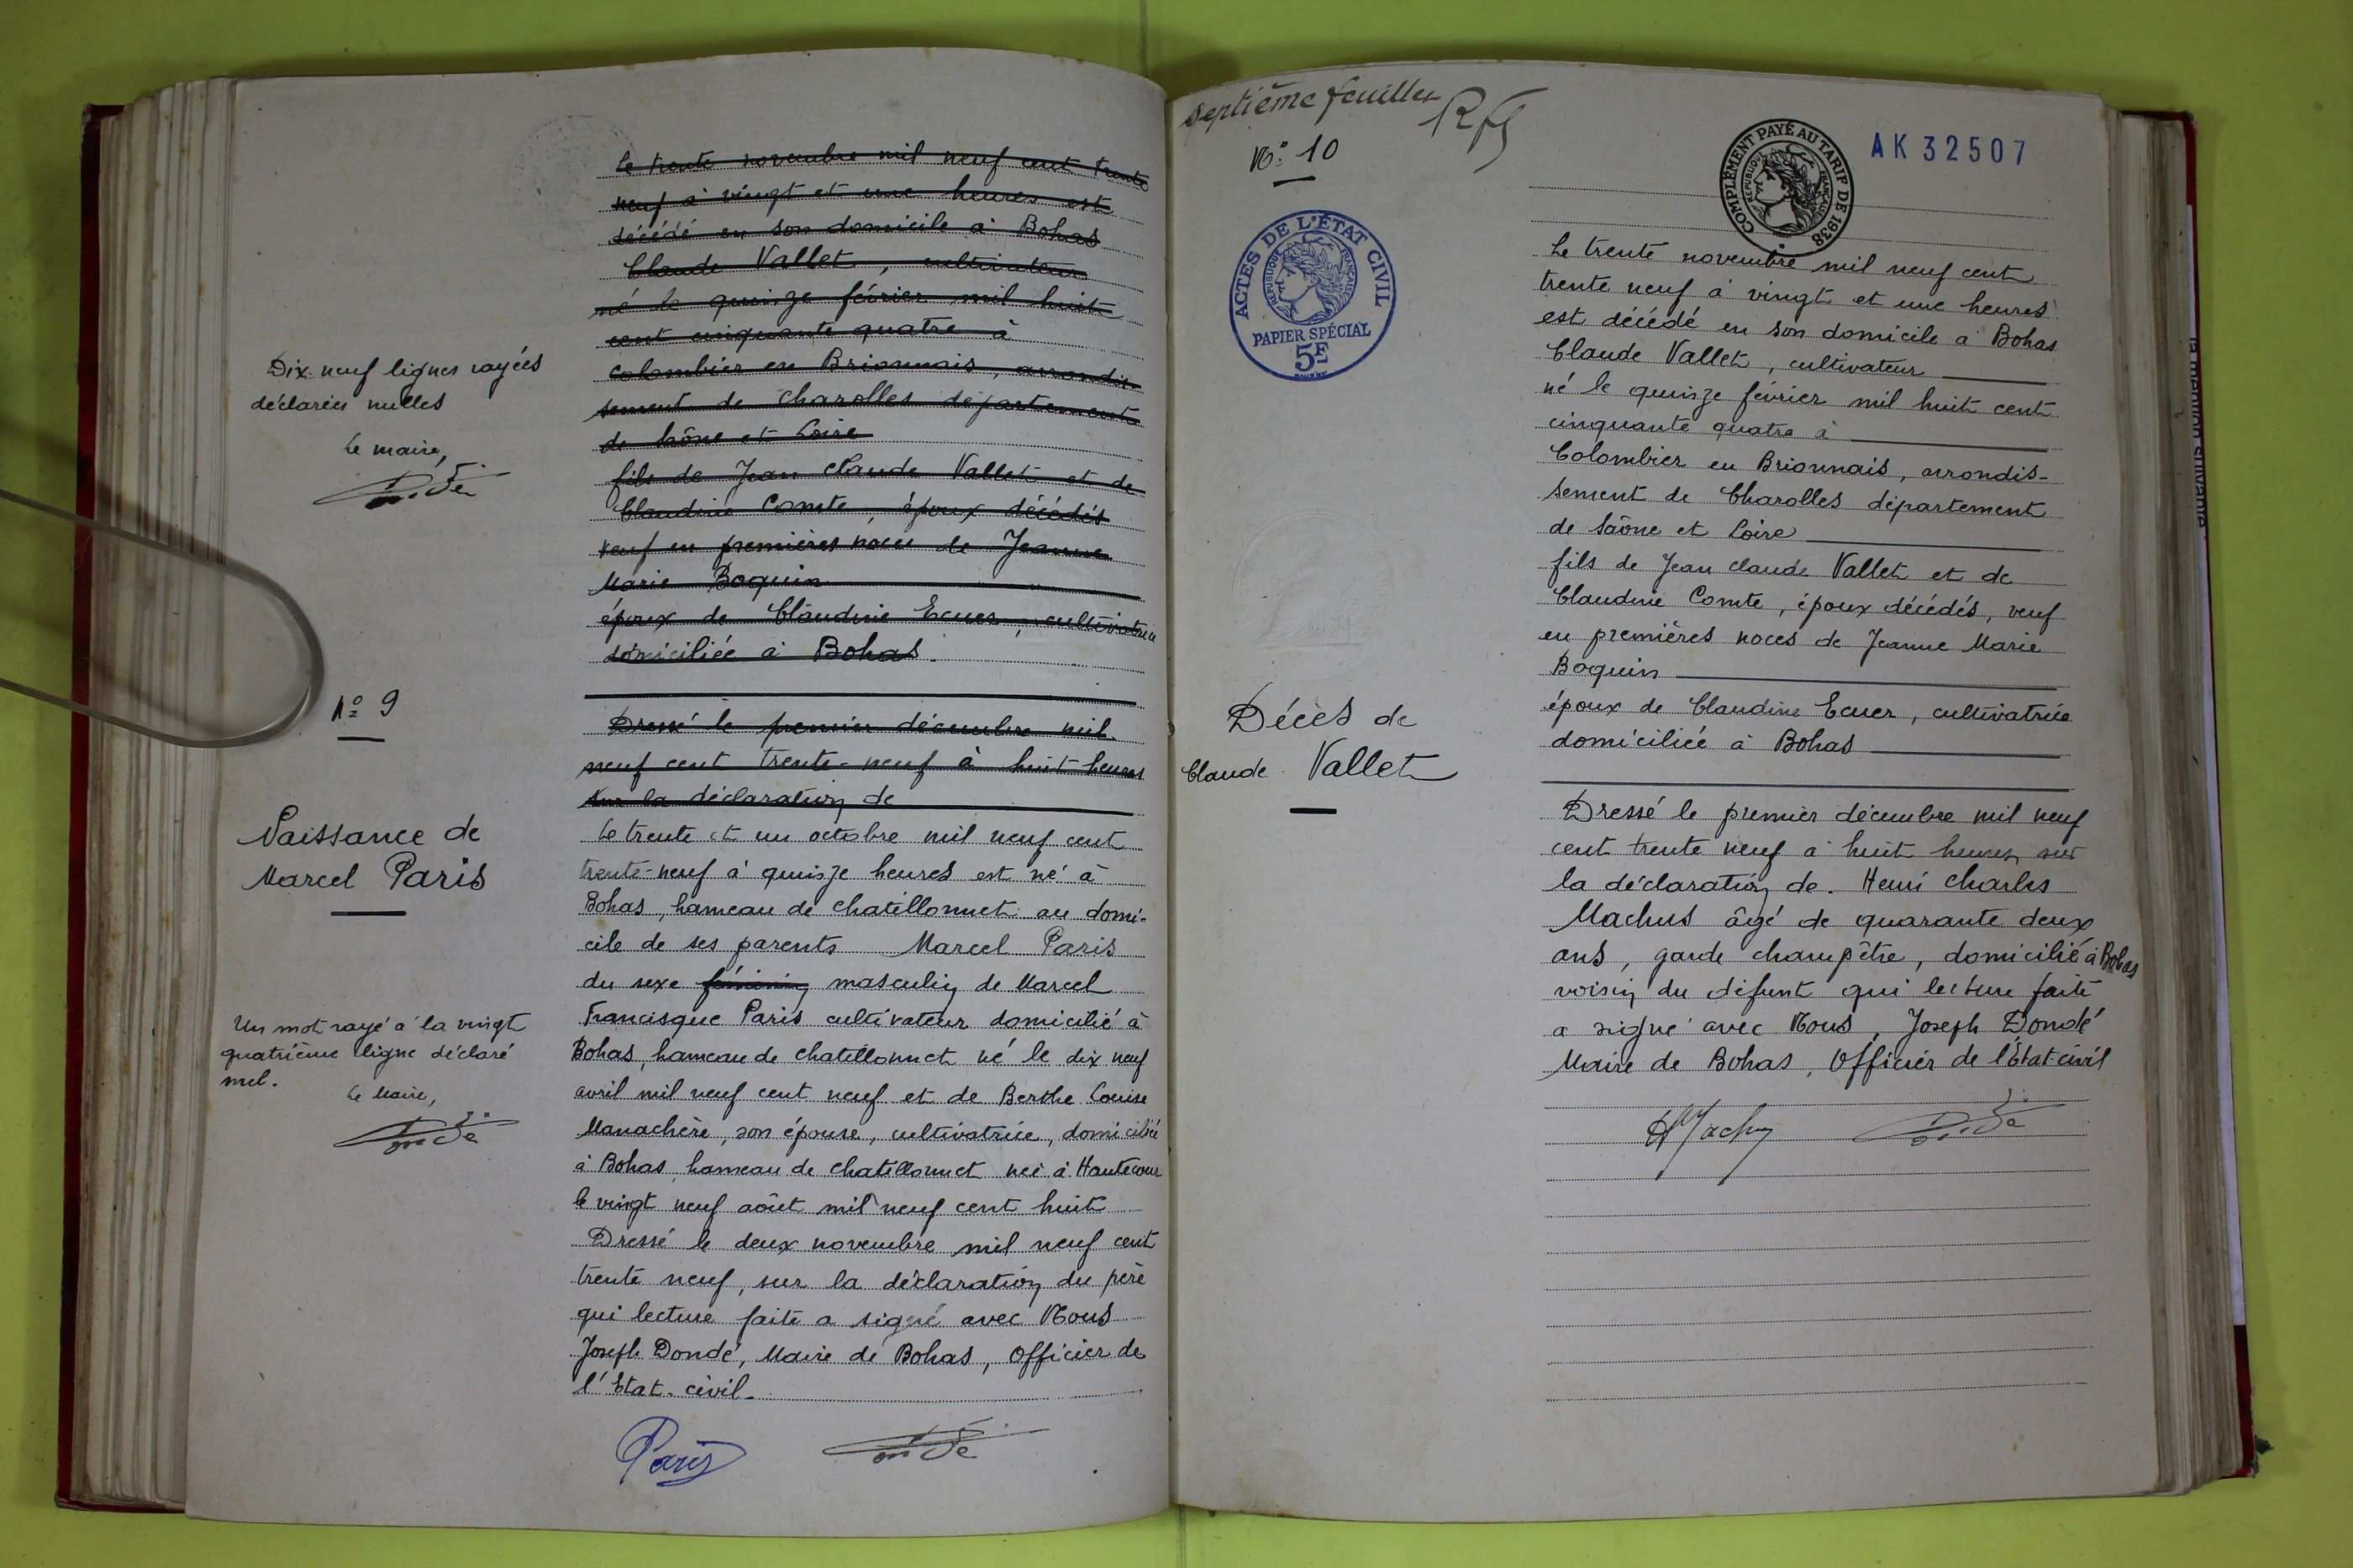 Le trente novembre mil neuf cent trente
neuf à vingt et une heures est
décédé en son domicile à Bohas
Claude Vallet, cultivateur
né le quinze février mil huit
cent cinquante quatre à
Colombier en Brionnais, arrondis-
sement de Charolles département
de Saône et Loire
fils de Jean Claude Vallet et de
Claudine Comte, époux décédés
veuf en premières noces de Jeanne
Marie Boquin
époux de Claudine Ecuer, cultivatrice
domiciliée à Bohas.
Dressé le premier décembre mil
neuf cent trente-neuf à huit heures
sur la déclaration de
Dix-neuf lignes rayées
déclarées nulles
Le maire,
Dondé
N° 9
Naissance de
Marcel Paris
Le trente et un octobre mil neuf cent
trente-neuf à quinze heures est né à
Bohas, hameau de Chatillonnet au domi-
cile de ses parents Marcel Paris
du sexe féminin masculin de Marcel
Francisque Paris cultivateur domicilié à
Bohas, hameau de Chatillonnet né le dix neuf
avril mil neuf cent neuf et de Berthe Louise
Manachère, son épouse, cultivatrice, domiciliée
à Bohas, hameau de Chatillonnet née à Hautecour
le vingt neuf août mil neuf cent huit
Dressé le deux novembre mil neuf cent
trente neuf, sur la déclaration du père
qui lecture faite a signé avec Nous
Joseph Dondé, Maire de Bohas, Officier de
l'Etat-civil.
Un mot rayé à la vingt
quatrième ligne déclaré
nul.
Le Maire,
Dondé
Paris Dondé
septième feuillet
N° 10
ACTES DE L'ÉTAT CIVIL
RÉPUBLIQUE FRANÇAISE
PAPIER SPÉCIAL
5F
COMPLÉMENT PAYÉ AU TARIF DE 1938
RÉPUBLIQUE FRANÇAISE
AK 32507
Décès de
Claude Vallet
Le trente novembre mil neuf cent
trente neuf à vingt et une heures
est décédé en son domicile à Bohas
Claude Vallet, cultivateur
né le quinze février mil huit cent
cinquante quatre à
Colombier en Brionnais, arrondis-
sement de Charolles département
de Saône et Loire
fils de Jean Claude Vallet et de
Claudine Comte, époux décédés, veuf
en premières noces de Jeanne Marie
Boquin
époux de Claudine Ecuer, cultivatrice
domiciliée à Bohas
Dressé le premier décembre mil neuf
cent trente neuf à huit heures sur
la déclaration de Henri Charles
Machus âgé de quarante deux
ans, garde champêtre, domicilié à Bohas
voisin du défunt qui lecture faite
a signé avec Nous, Joseph Dondé
Maire de Bohas, Officier de l'Etat-civil
Dondé
la mention suivante